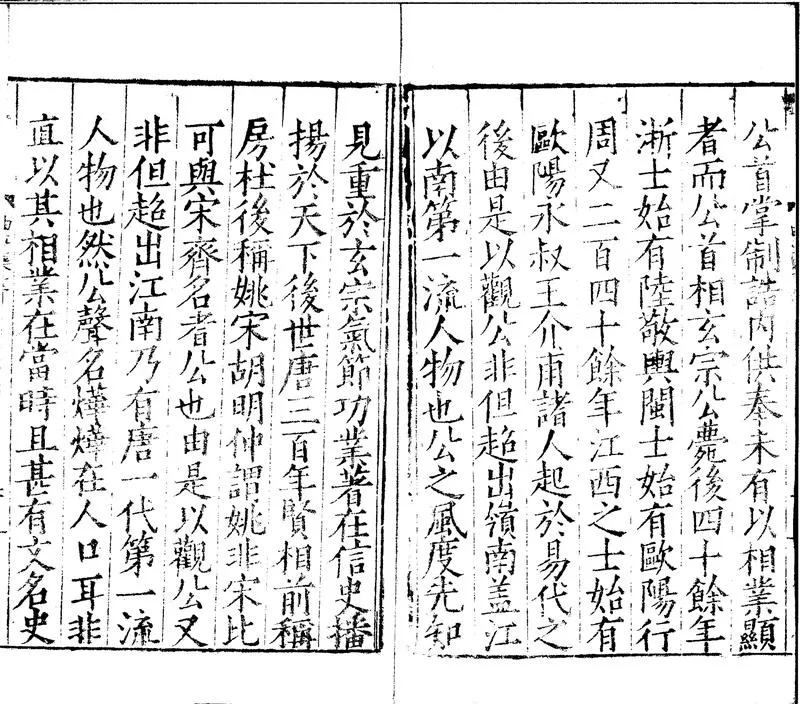 公首掌制誥內供奉未有以相業顯
者而公首相玄宗公薨後四十餘年
浙士始有陸敬輿閩士始有歐陽行
周又二百四十餘年江西之士始有
歐陽永叔王介甫諸人起於易代之
後由是以觀公非但超出嶺南盖江
以南第一流人物也公之風度先知
見重於玄宗氣節功業著在信史播
揚於天下後世唐三百年賢相前稱
房杜後稱姚宋胡明仲謂姚非宋比
可與宋齊名者公也由是以觀公又
非但超出江南乃有唐一代第一流
人物也然公聲名燁燁在人口耳非
直以其相業在當時且甚有文名史